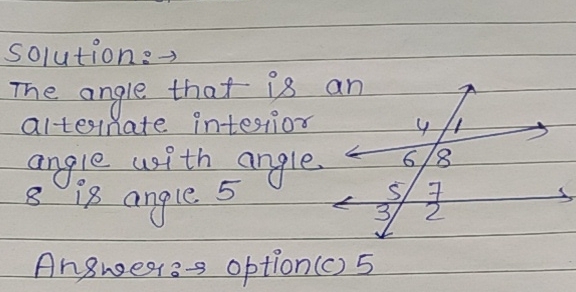 Solution:→
The angle that is an
alternate interior
angle with angle
8 is angle 5
4 1
6 8
5 7
3 2
Answer:→ option(c) 5